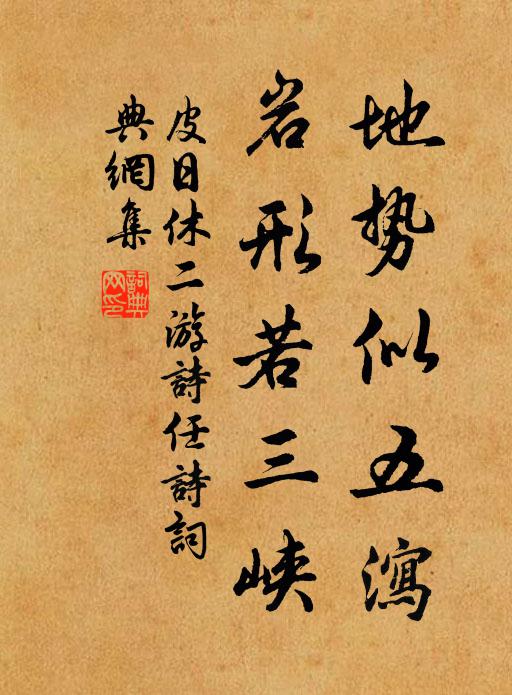 地势似五瀉
岩形若三峡
皮日休二游詩任詩詞
典網集
詞典網印